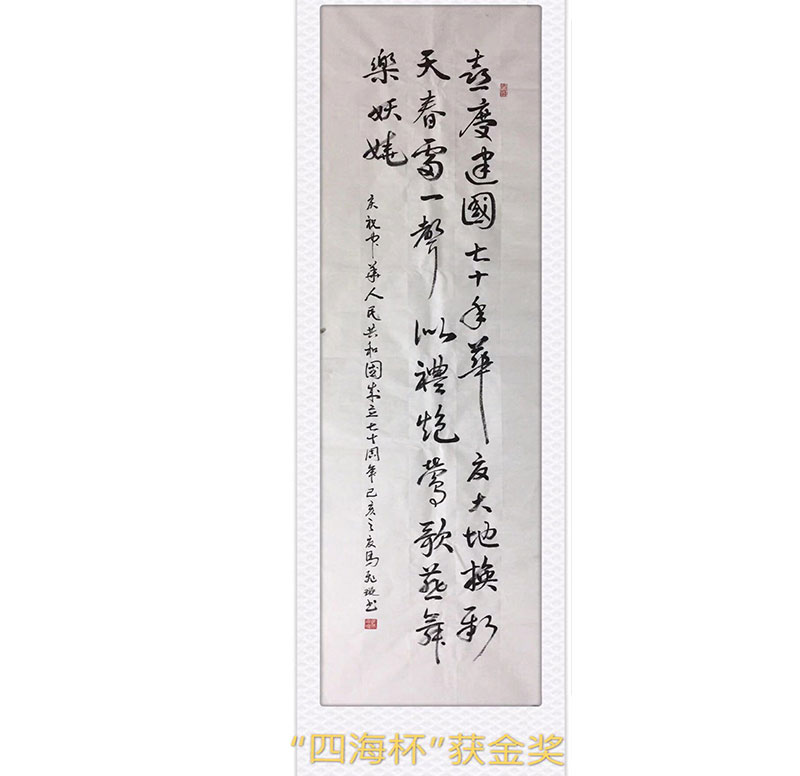 喜度建國七十年華夏大地換新
天春雷一聲似禮炮鶯歌燕舞
樂妖嬈
庆祝中華人民共和國成立七十周年己亥之夏馬书
“四海杯”获金奖